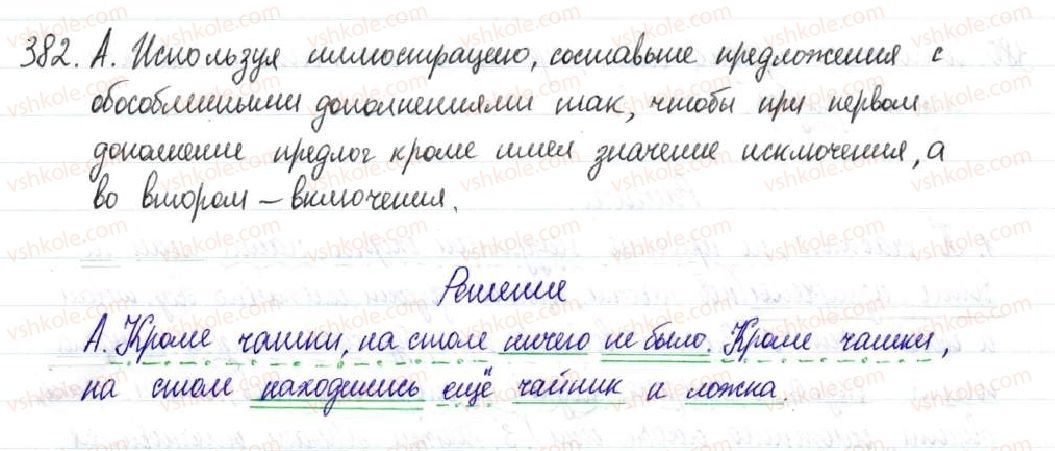 382. А. Используя иллюстрацию, составьте предложения с
обособленными дополнениями так, чтобы при первом
дополнение предлог кроме имел значение исключения, а
во втором – включения.
Решение
А. Кроме чашки, на столе ничего не было. Кроме чашки,
на столе находились ещё чайник и ложка.